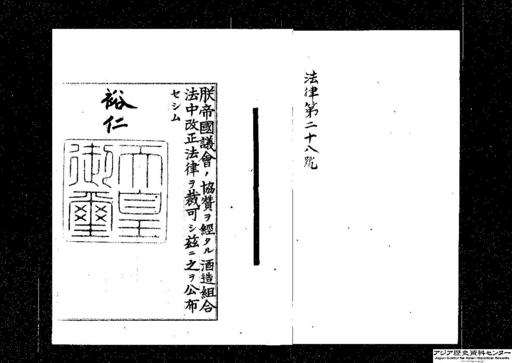 法律第二十八號
朕帝國議會ノ協贊ヲ經タル酒造組合
法中改正法律ヲ裁可シ茲ニ之ヲ公布
セシム
裕仁
天皇
御璽
アジア歴史資料センター
Japan Center for Asian Historical Records